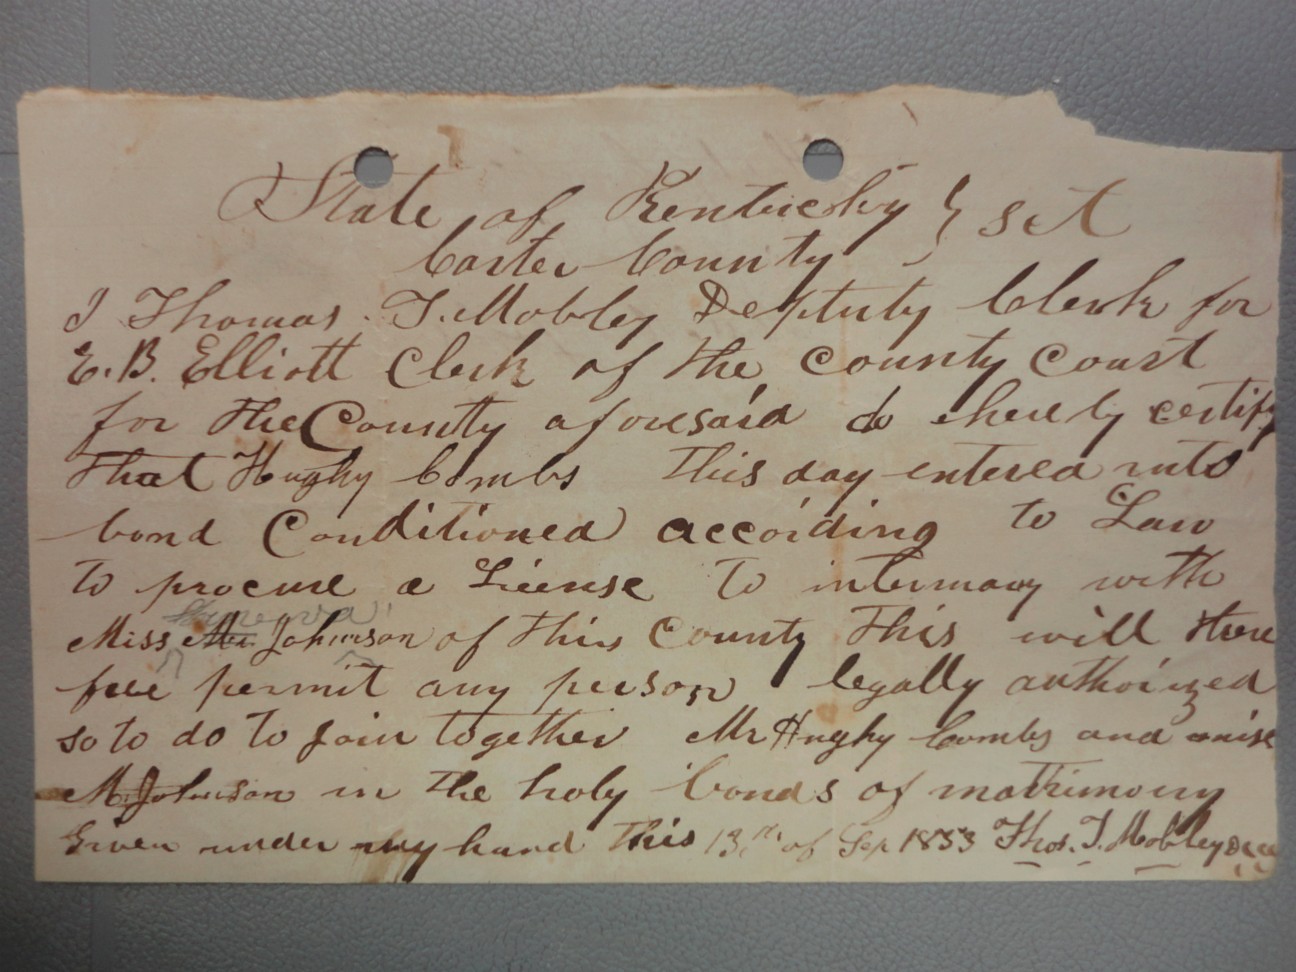 State of Kentucky } sct
Carter County
I Thomas T. Mobley Deputy Clerk for
E. B. Elliott Clerk of the County Court
for the County aforesaid do hereby certify
that Hughy Combs this day entered into
bond Conditioned according to Law
to procure a License to intermary with
Miss M. Johnson of this County This will there
fore permit any person legally authorized
so to do to Join together Mr Hughy Combs and miss
M. Johnson in the holy bonds of matrimony
Given under my hand this 13th of Sep 1853 Thos. T. Mobley